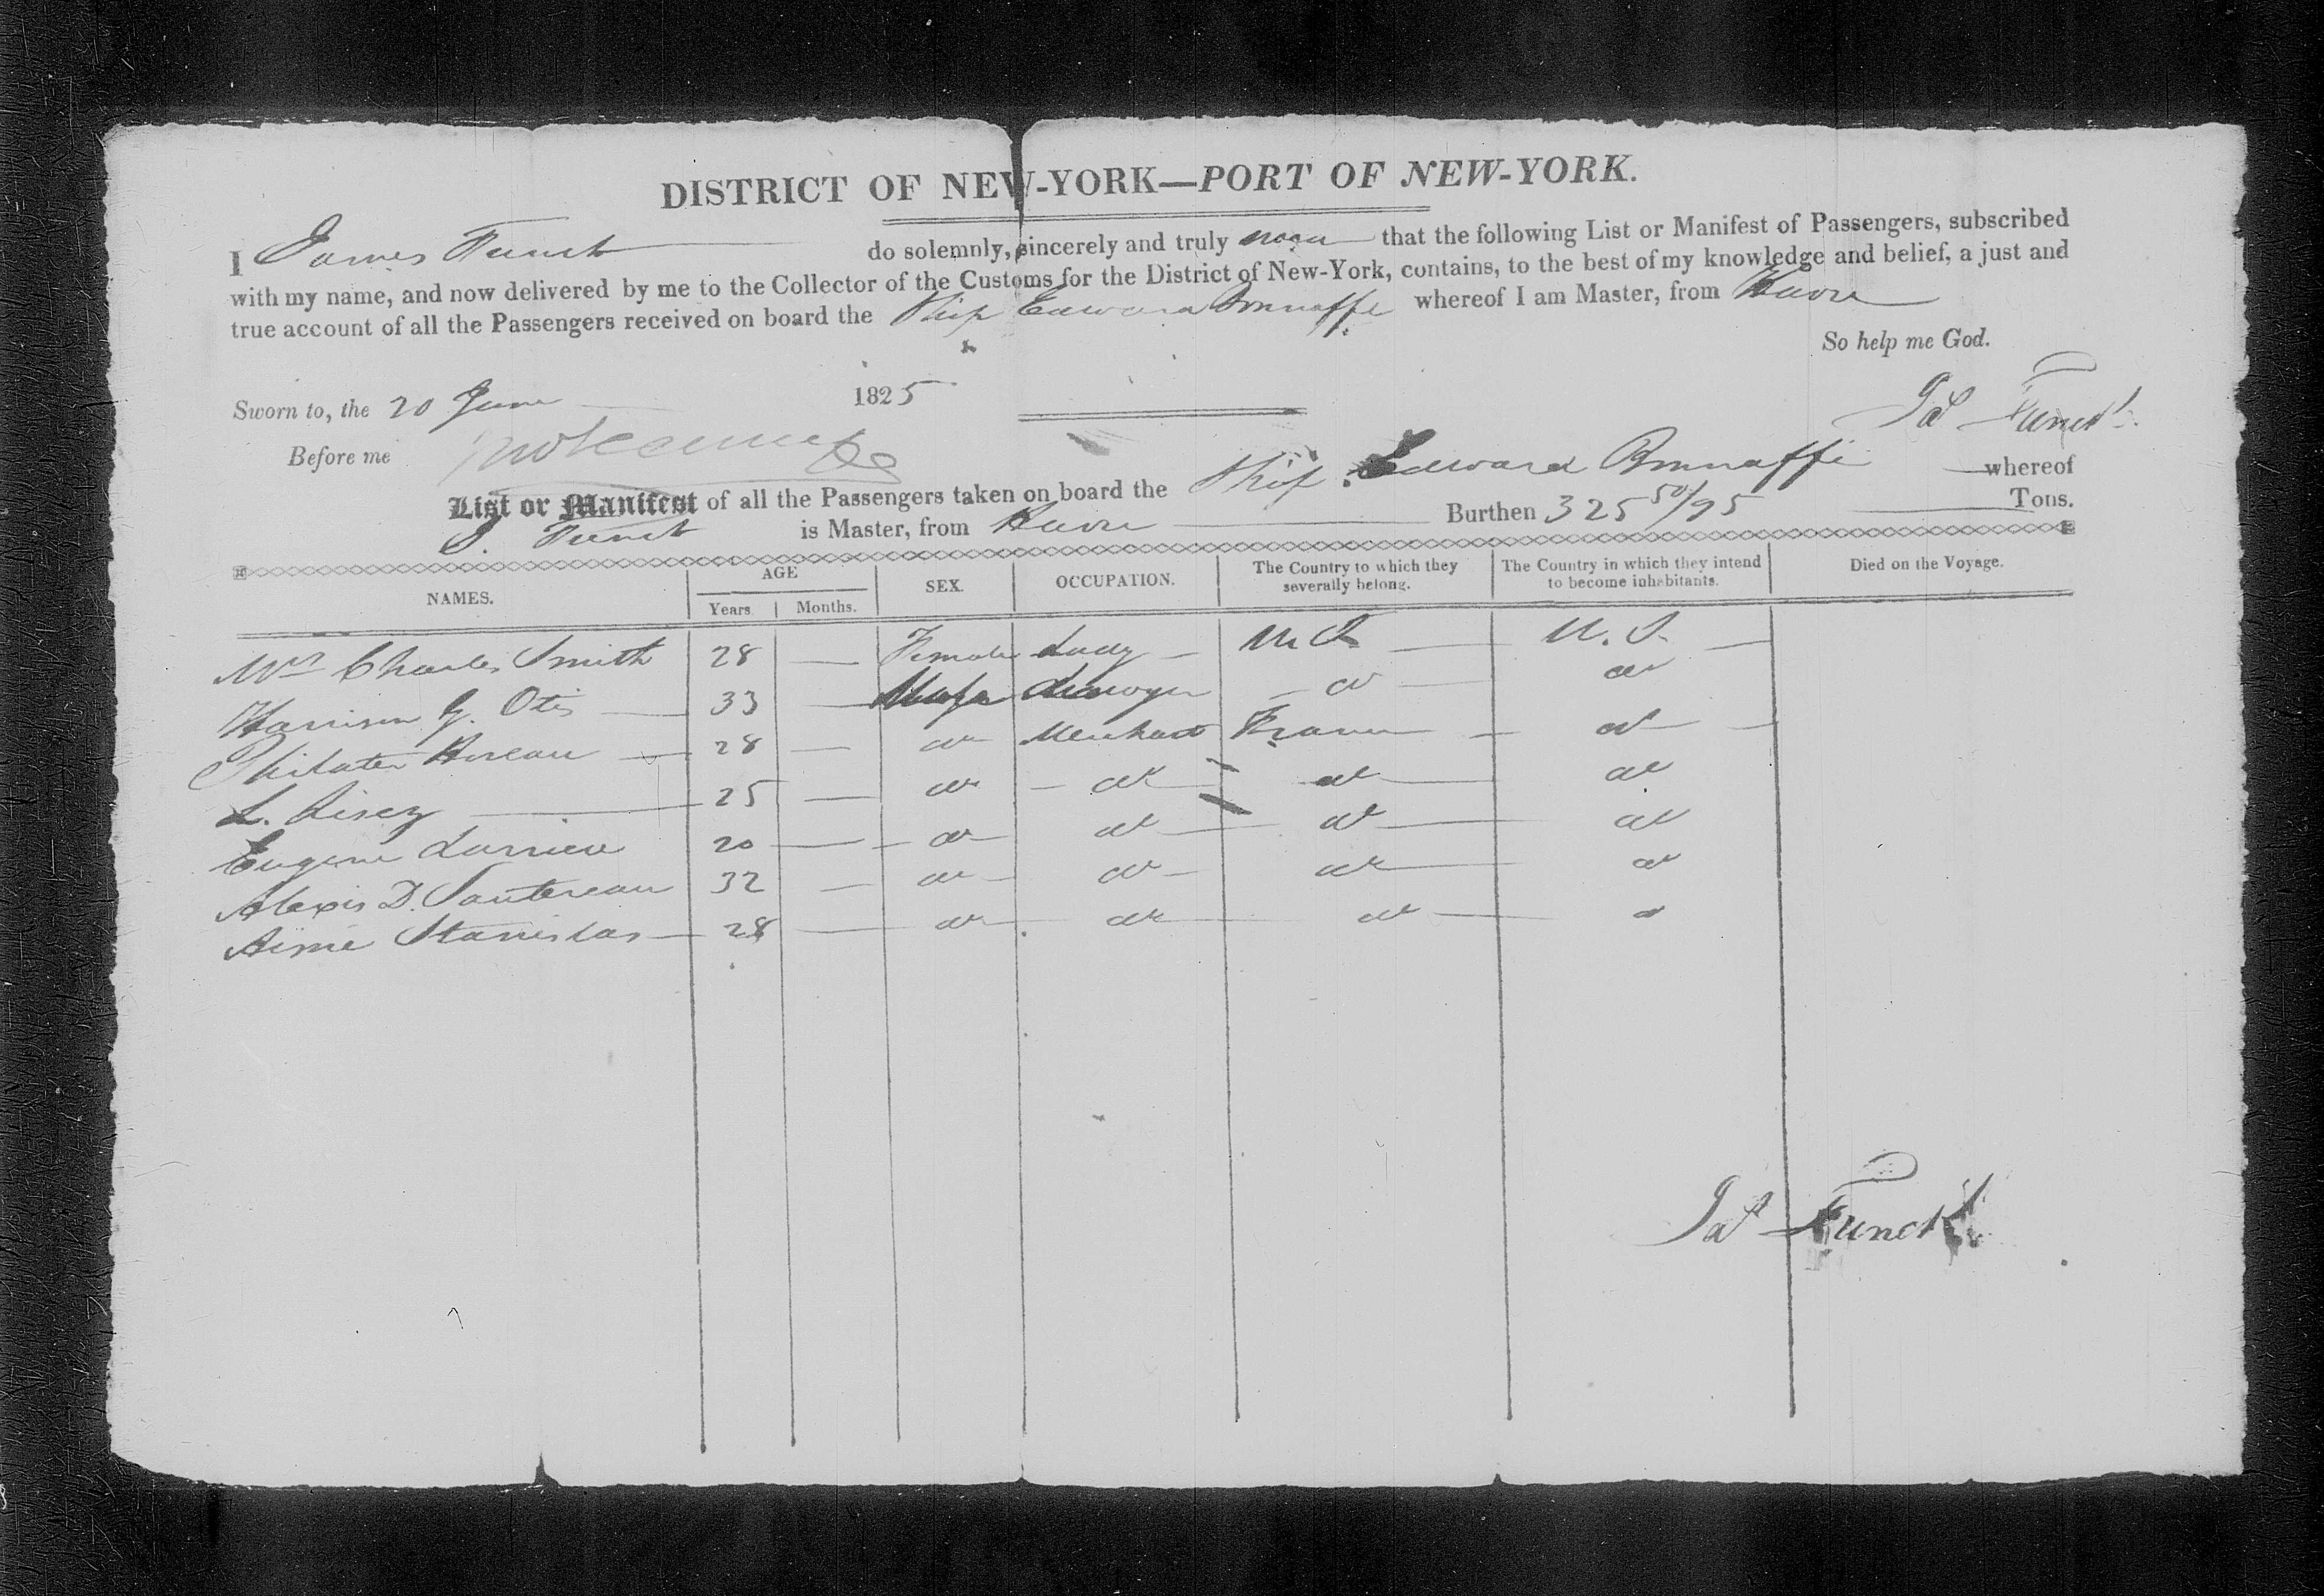 DISTRICT OF NEW-YORK—PORT OF NEW-YORK.
I James Funck do solemnly, sincerely and truly swear that the following List or Manifest of Passengers, subscribed
with my name, and now delivered by me to the Collector of the Customs for the District of New-York, contains, to the best of my knowledge and belief, a just and
true account of all the Passengers received on board the Ship Edward Bonnaffe whereof I am Master, from Havre
So help me God.
Sworn to, the 20 June 1825
Jas Funck
Before me
List or Manifest of all the Passengers taken on board the Ship Edward Bonnaffe whereof
J. Funck is Master, from Havre Burthen 325 50/95 Tons.
NAMES. AGE Years. Months. SEX. OCCUPATION. The Country to which they severally belong. The Country in which they intend to become inhabitants. Died on the Voyage.
Mrs Charles Smith 28 — Female Lady U S U. S.
Harrison G. Otis 33 — Male Lawyer do do
Hureau 28 — do Merchant France do
L. 25 — do do do do
Eugene 20 — do do do do
Alexis D. Sautereau 32 — do do do do
Aimé Stanislas 28 — do do do do
Jas Funck